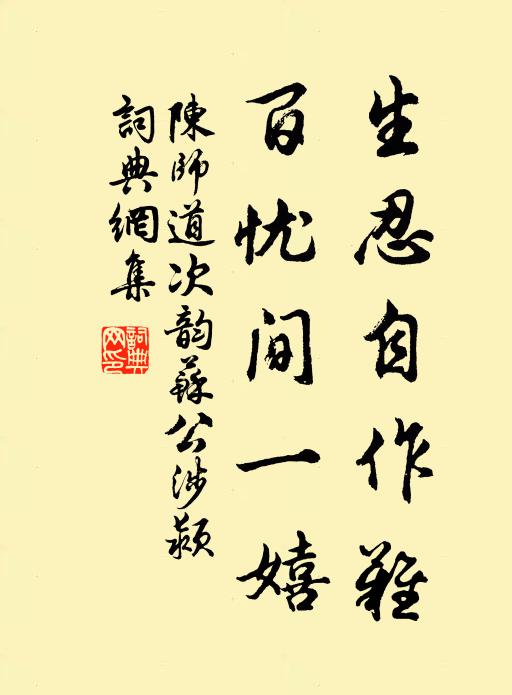 生忍自作難
百忧间一嬉
陳師道次韵蘇公涉颍
詞典網集
詞典网印